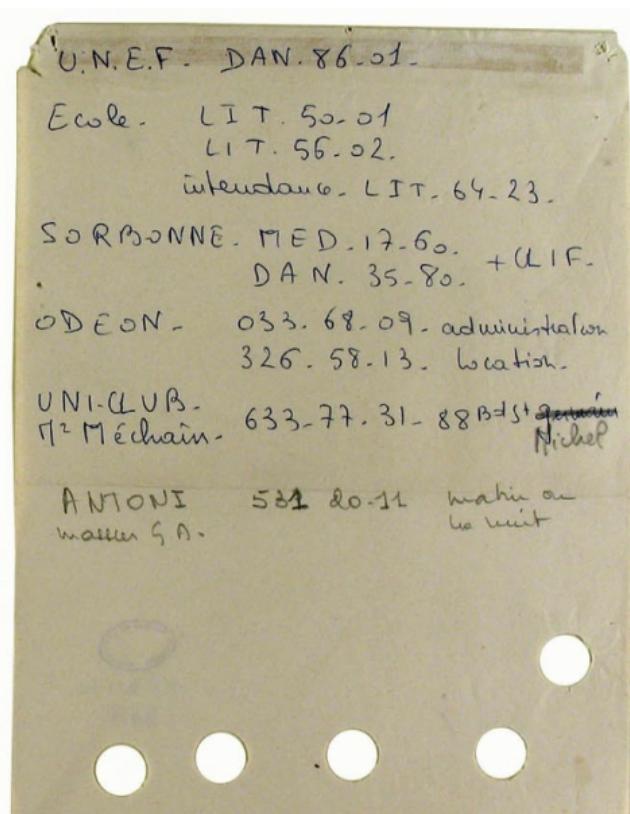 U.N.E.F. DAN. 86-01.
Ecole. LIT. 50-01
LIT. 56-02.
intendance. LIT. 64-23.
SORBONNE. MED. 17-60.
DAN. 35-80. + CLIF.
ODEON - 033. 68-09. administration
326. 58-13. location.
UNI-CLUB.
Mr Méchain. 633-77.31- 88 Bd St germain
Michel
ANTONI 531 20-11 matin ou
la nuit